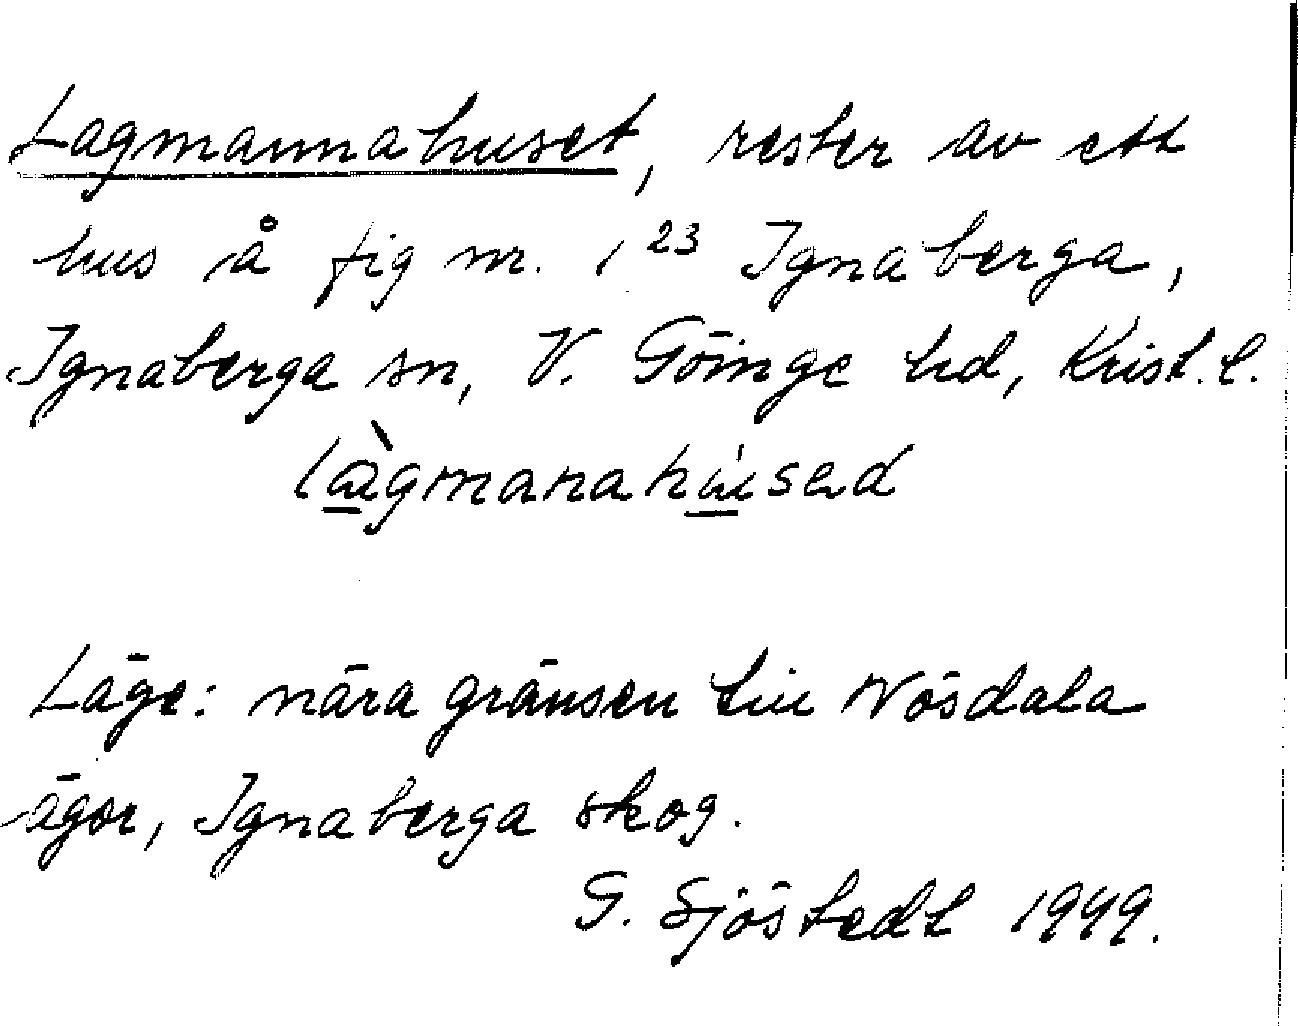 Lagmannahuset, rester av ett
hus å fig nr. 1²³ Ignaberga,
Ignaberga sn, V. Göinge hd, Krist. l.
làgmanahúsed
Läge: nära gränsen till Nösdala
ägor, Ignaberga skog.
G. Sjöstedt 1949.